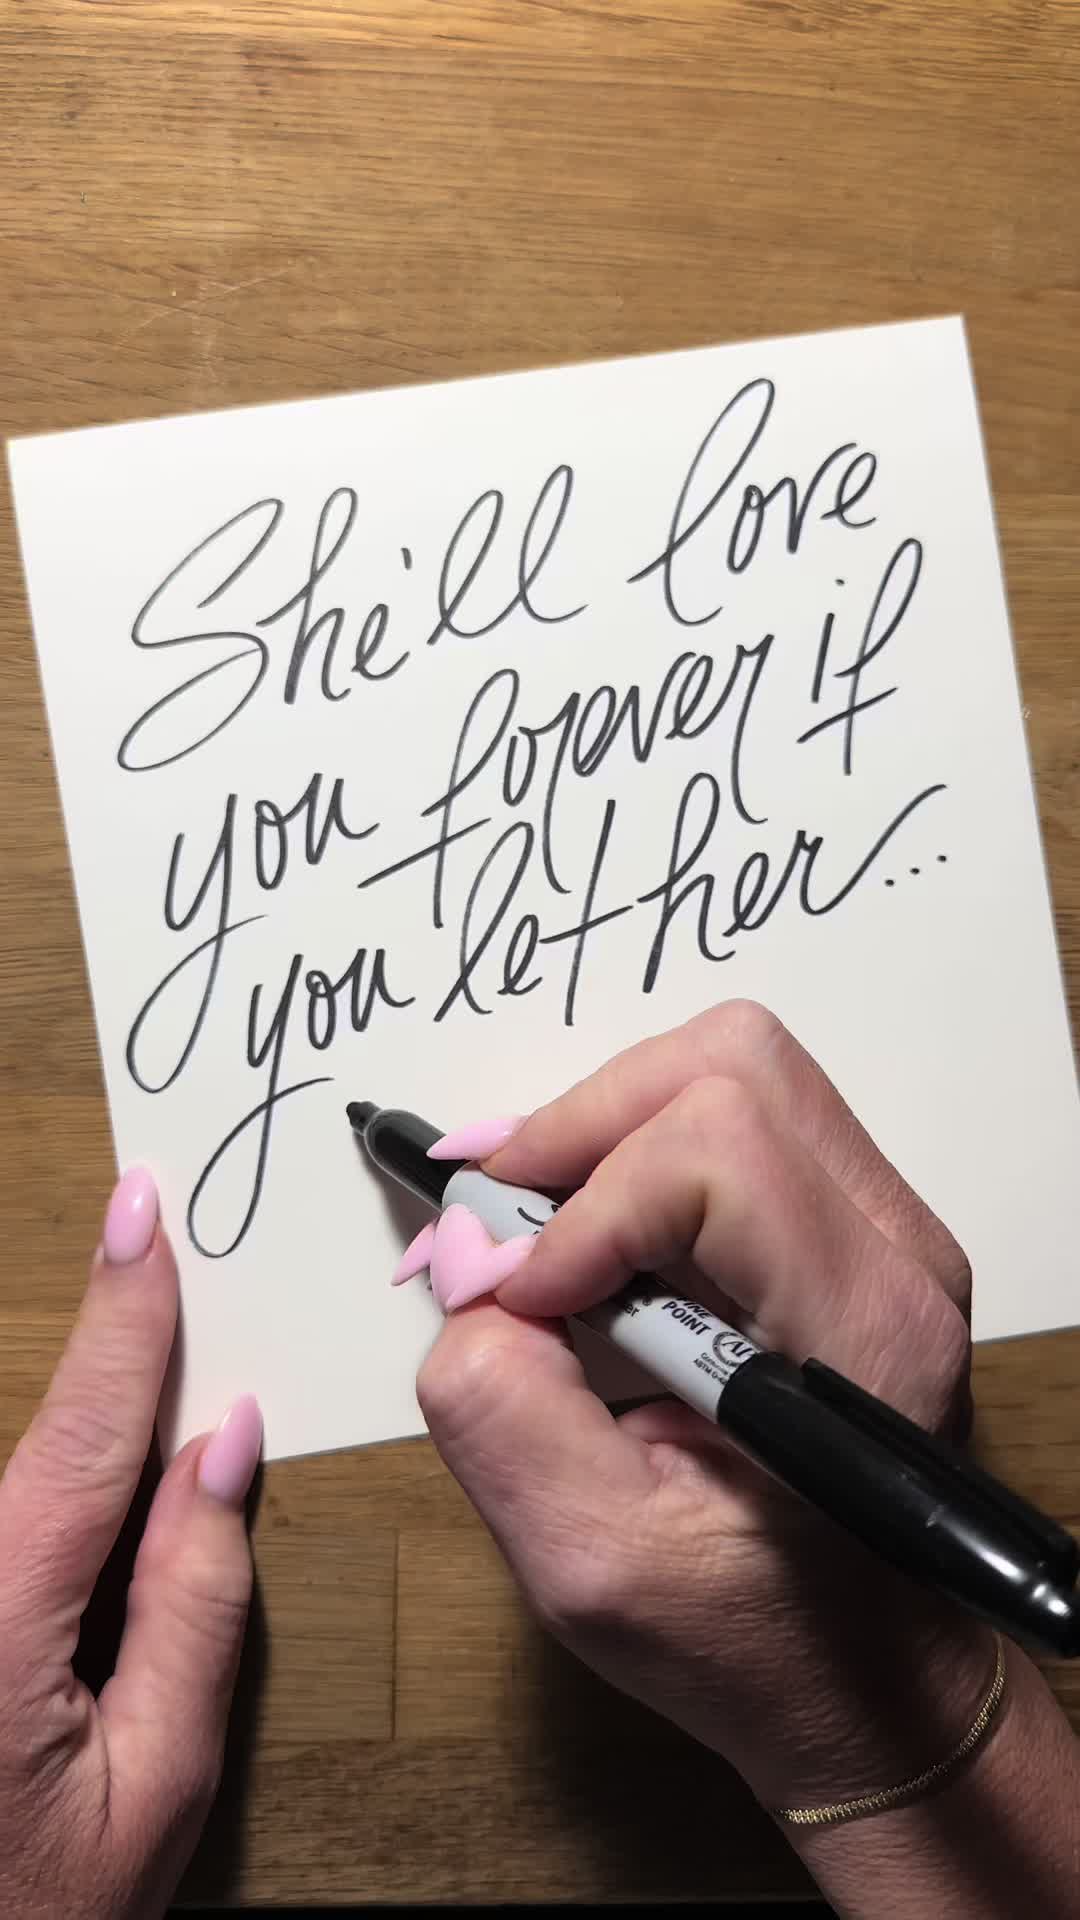 She'll love
you forever if
you let her...
FINE
POINT
AP